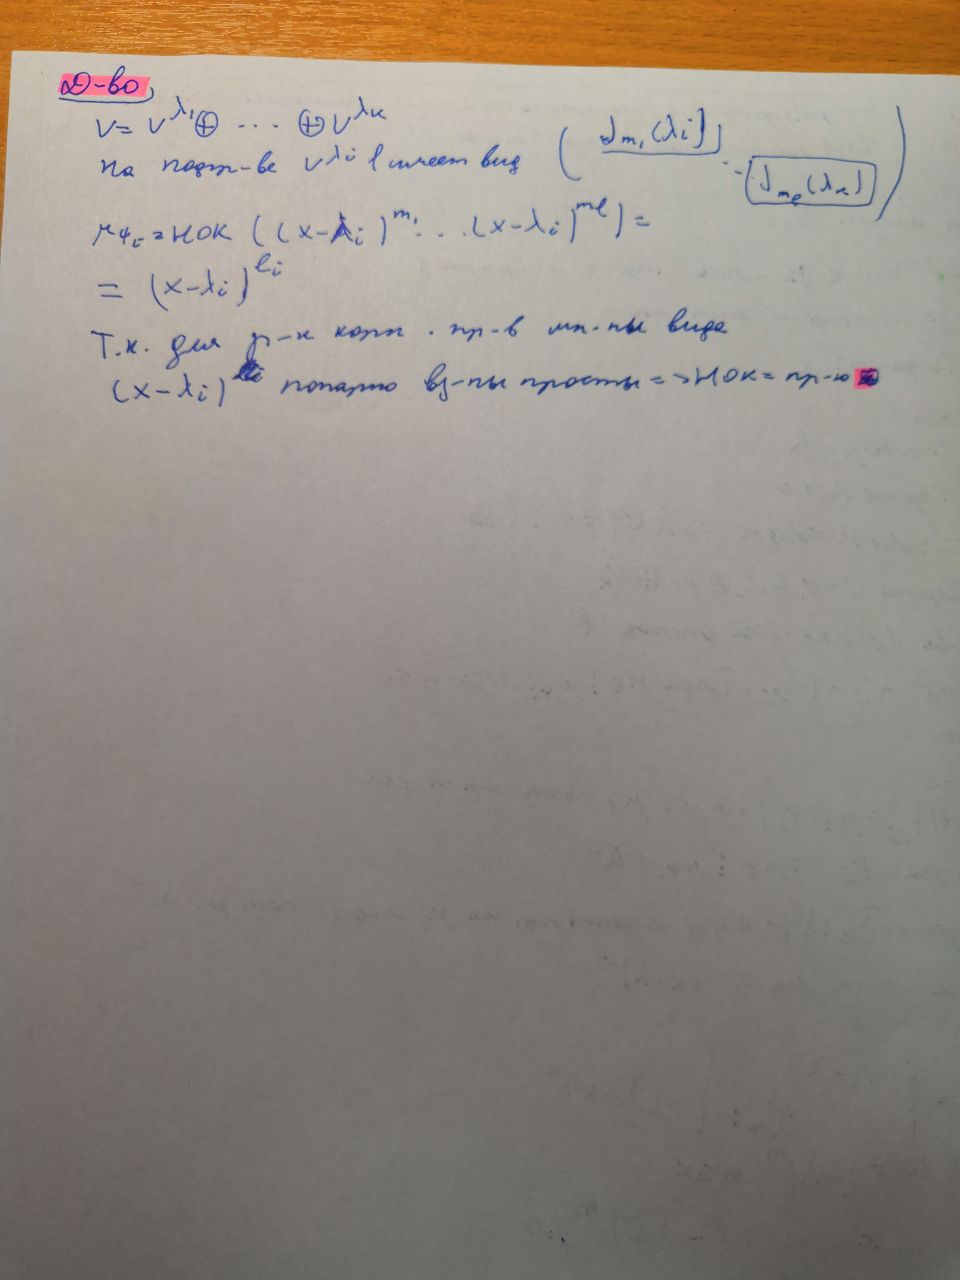 Д-во
V = V^λ₁ ⊕ ... ⊕ V^λₖ
на подпр-ве V^λᵢ φ имеет вид ( J_m₁(λᵢ) ... J_mₑ(λₖ) )
μφᵢ = НОК ((x-λᵢ)^m₁ ... (x-λᵢ)^mℓ) =
= (x-λᵢ)^ℓᵢ
Т.к. для корн. пр-в мн-ны вида
(x-λᵢ)^ℓᵢ попарно вз-но просты => НОК = пр-ю